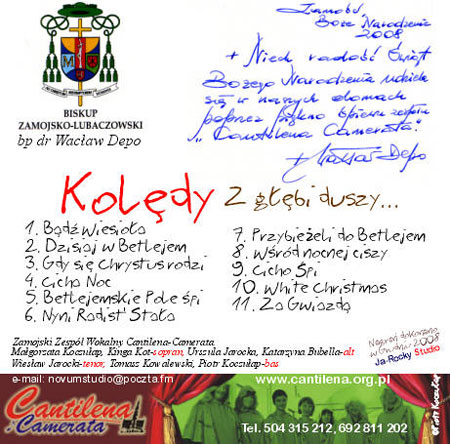 Zamość
Boże Narodzenie
2008
+ Niech radość Świąt
Bożego Narodzenia udziela
się w naszych domach
poprzez piękno śpiewu zespołu
"Cantilena Camerata".
+ Wacław Depo
BISKUP
ZAMOJSKO-LUBACZOWSKI
bp dr Wacław Depo
Kolędy z głębi duszy...
1. Bądź Wiesioła
2. Dzisiaj w Betlejem
3. Gdy się Chrystus rodzi
4. Cicha Noc
5. Betlejemskie Pole śpi
6. Nyni Radist' Stała
7. Przybieżeli do Betlejem
8. Wśród nocnej ciszy
9. Cicho Śpi
10. White Christmas
11. Za Gwiazdą
Zamojski Zespół Wokalny Cantilena-Camerata
Małgorzata Koczułap, Kinga Kot-sopran, Urszula Jarocka, Katarzyna Bubella-alt
Wiesław Jarocki-tenor, Tomasz Kowalewski, Piotr Koczułap-bas
Nagrań dokonano
w Grudniu 2008
Ja-Rocky Studio
e-mail: novumstudio@poczta.fm
www.cantilena.org.pl
Cantilena
Camerata
Tel. 504 315 212, 692 811 202
Piotr Koczułap